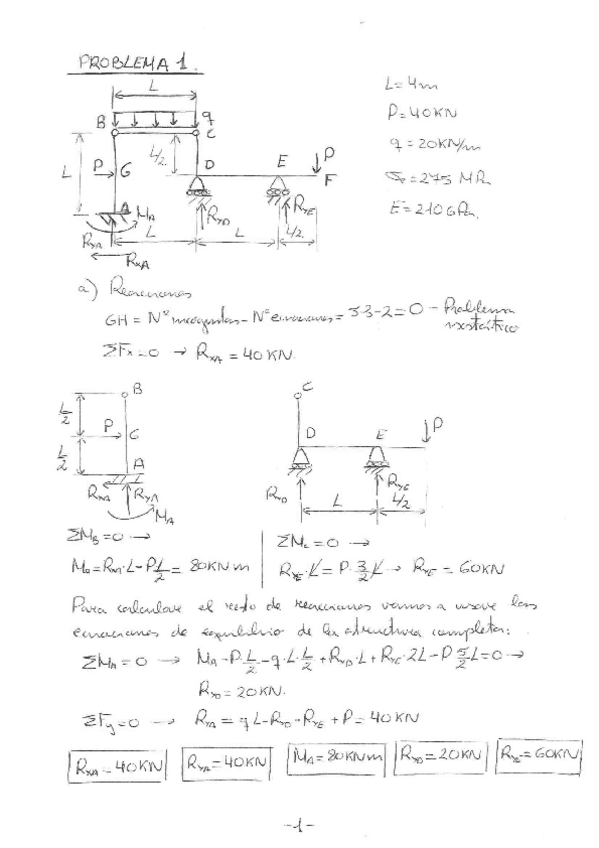 PROBLEMA 1.
L
B q C
L/2
L P G D E P F
A MA
RyD RyE
RyA L L L/2
RxA
L=4m
P=40KN
q=20KN/m
σe=275 MPa
E=210GPa.
a) Reacciones
GH = Nº incógnitas - Nº ecuaciones = 5-3-2=0 - Problema isostático
ΣFx=0 → RxA = 40KN.
B
L/2
P G
L/2
A
RxA RyA
MA
C
D E P
RyD L RyE L/2
ΣMB=0 →
MA=RxA·L-P L/2 = 80KN m
ΣMc=0 →
RyE·L=P·3/2 L → RyE = 60KN
Para calcular el resto de reacciones vamos a usar las
ecuaciones de equilibrio de la estructura completa:
ΣMA=0 → MA-P·L/2-q·L·L/2+RyD·L+RyE·2L-P 5/2 L=0→
RyD=20KN.
ΣFy=0 → RyA=qL-RyD-RyE+P=40KN
RxA=40KN RyA=40KN MA=80KNm RyD=20KN RyE=60KN
-1-